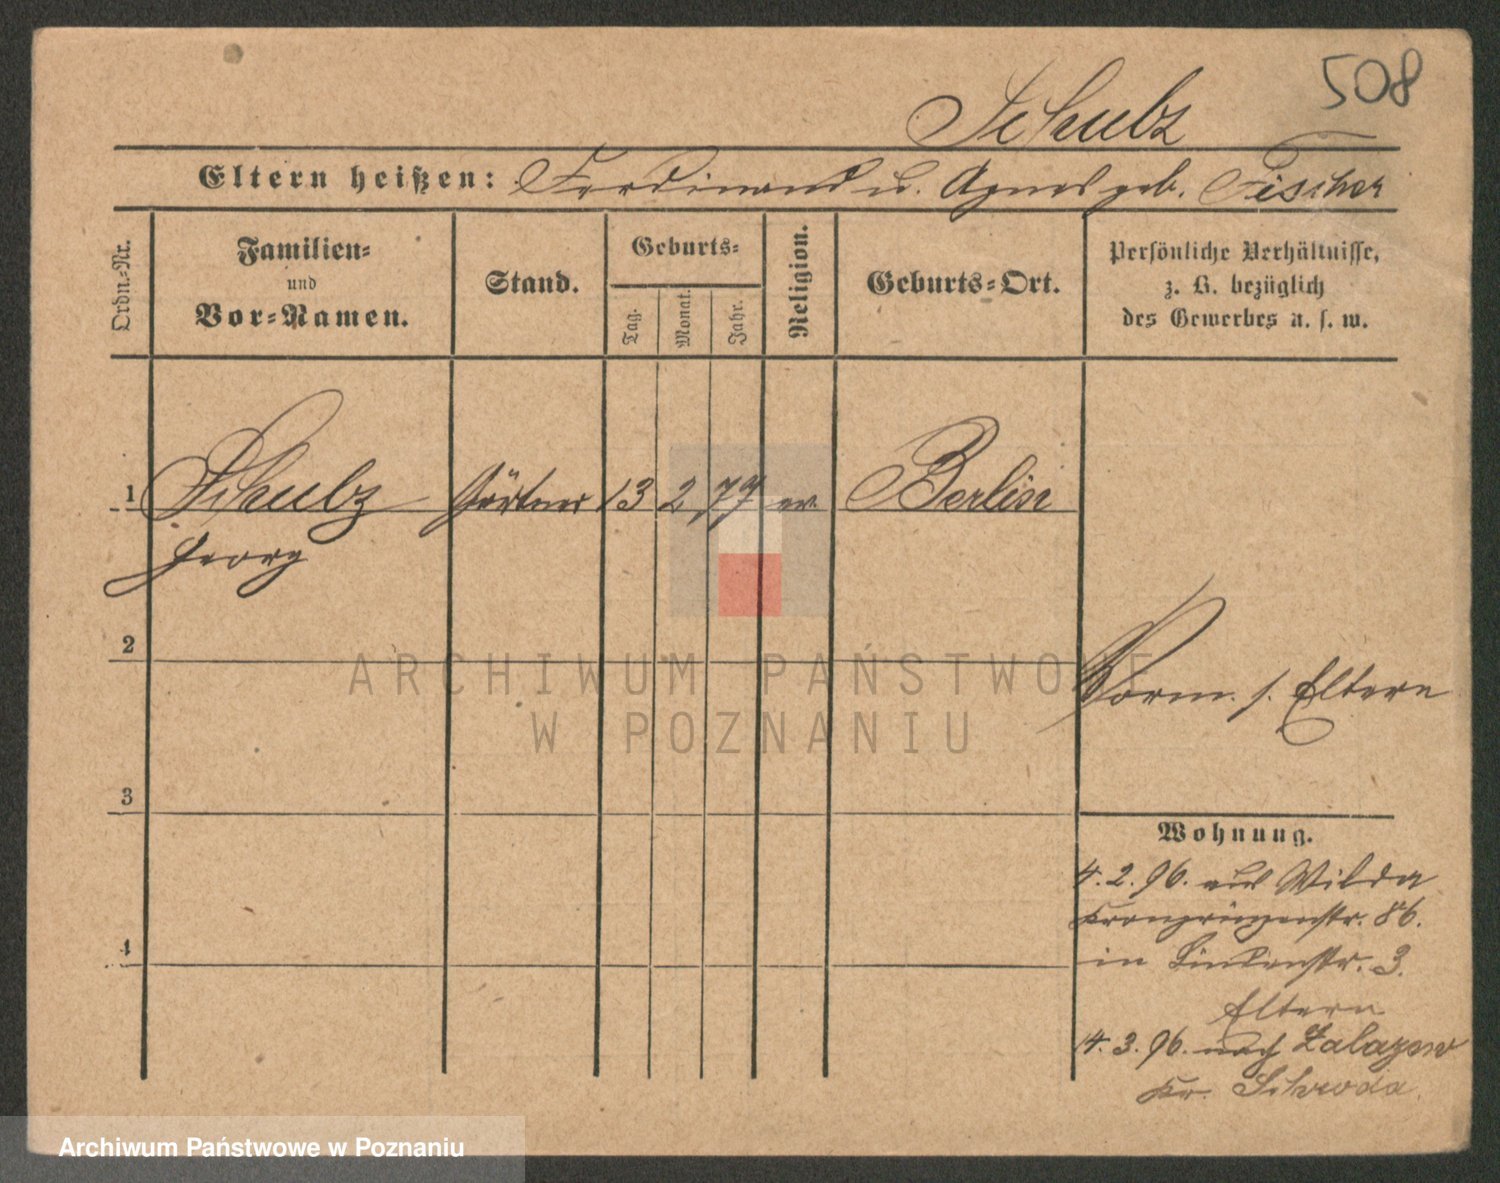 508
Schulz
Eltern heißen: Ferdinand u. Agnes geb. Fischer
Ordn.-Nr.
Familien-
und
Vor-Namen.
Stand.
Geburts-
Tag.
Monat.
Jahr.
Religion.
Geburts-Ort.
Persönliche Verhältnisse,
z. B. bezüglich
des Gewerbes u. s. w.
1 Schulz Gärtner 13 2 79 ev. Berlin
Georg
2
Vorm. s. Eltern
3
Wohnung.
4. 2. 96. aus Wilda
Kronprinzenstr. 86.
4
in Lindenstr. 3.
Eltern
14. 3. 96. nach Zalazewo
Kr. Schroda.
ARCHIWUM PAŃSTWOWE
W POZNANIU
Archiwum Państwowe w Poznaniu